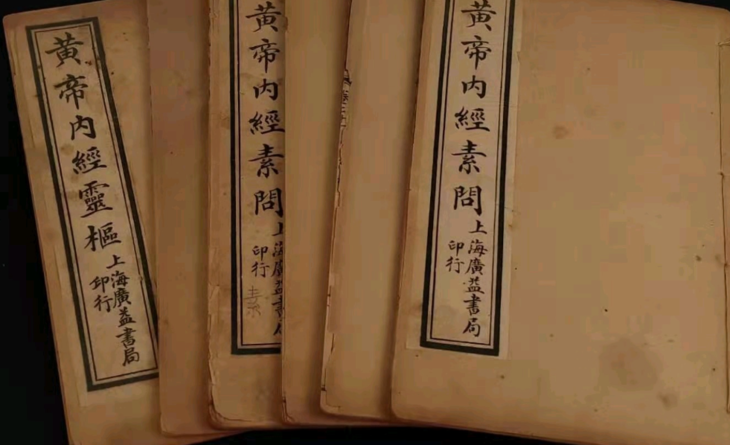 黄帝内經靈樞
上海廣益書局
印行
黄帝内經素問
上海廣益書局
印行
素
黄帝内經素問
上海廣益書局
印行